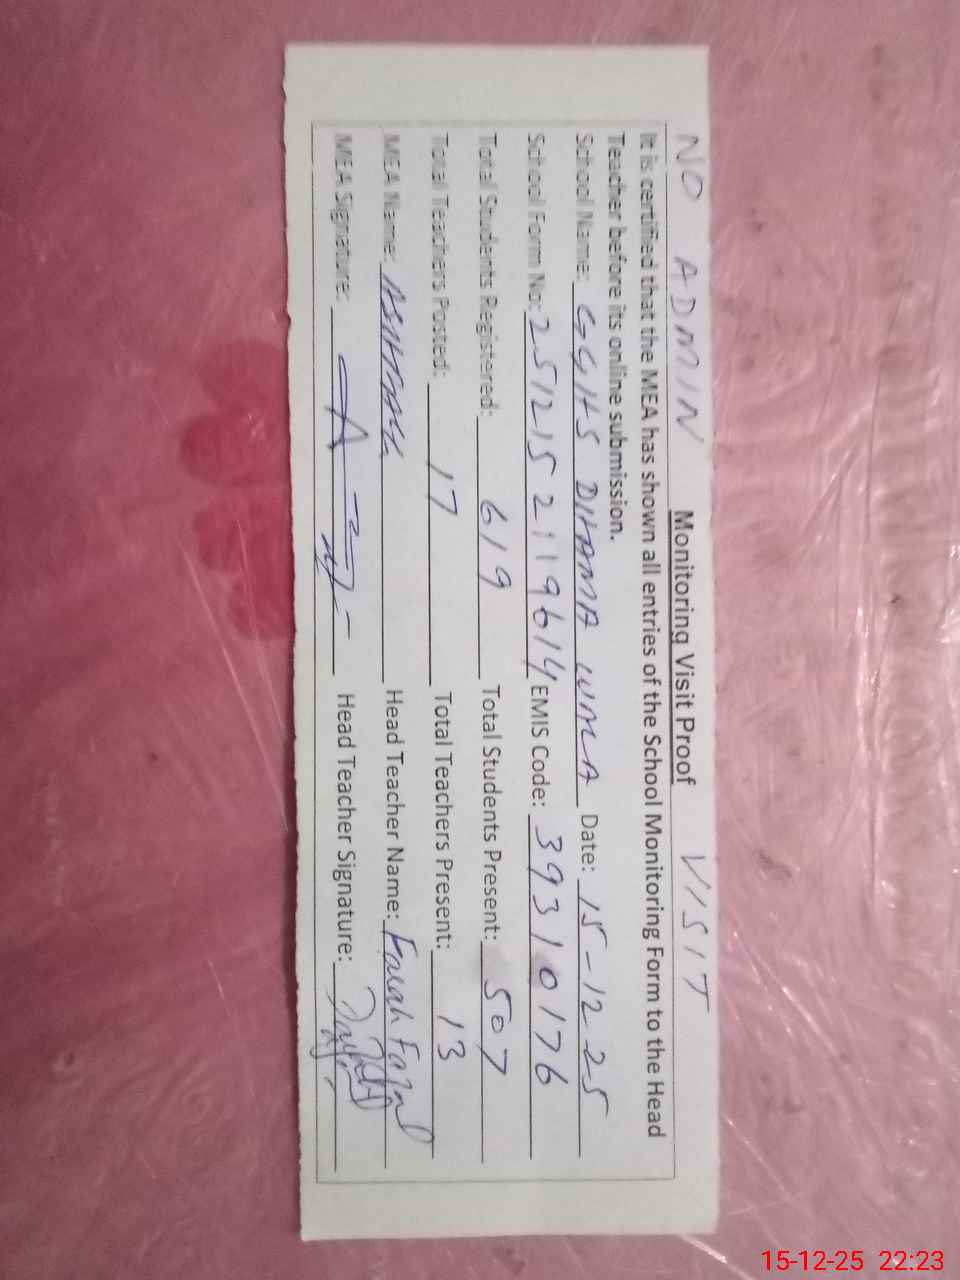 NO ADMIN VISIT
Monitoring Visit Proof
It is certified that the MEA has shown all entries of the School Monitoring Form to the Head
Teacher before its online submission.
School Name: GGHS DHAMA WALA Date: 15-12-25
School Form No: 251215 2119614 EMIS Code: 39310176
Total Students Registered: 619 Total Students Present: 507
Total Teachers Posted: 17 Total Teachers Present: 13
MEA Name: Head Teacher Name: Farah
MEA Signature: Head Teacher Signature:
15-12-25 22:23